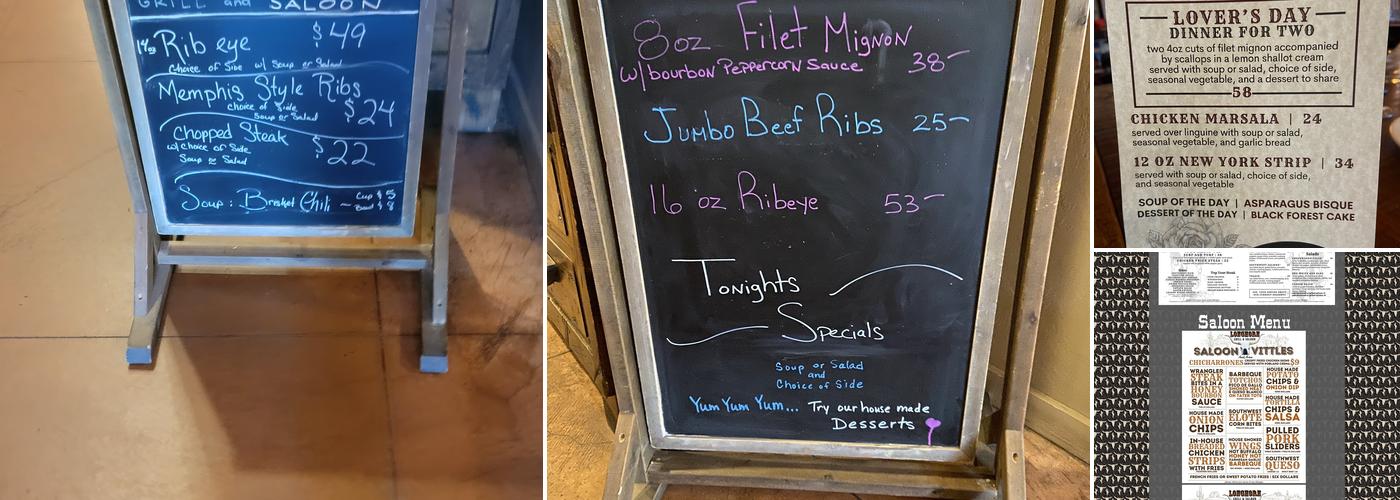 GRILL and SALOON
14oz Rib eye $49
Choice of Side w/ Soup or Salad
Memphis Style Ribs
choice of Side $24
Soup or Salad
Chopped Steak
w/ choice of Side $22
Soup or Salad
Soup: Brisket Chili — Cup $5
Bowl $8
8oz Filet Mignon
w/bourbon Peppercorn Sauce 38-
Jumbo Beef Ribs 25-
16 oz Ribeye 53-
Tonights
Specials
Soup or Salad
and
Choice of Side
Yum Yum Yum... Try our house made
Desserts
LOVER'S DAY
DINNER FOR TWO
two 4oz cuts of filet mignon accompanied
by scallops in a lemon shallot cream
served with soup or salad, choice of side,
seasonal vegetable, and a dessert to share
58
CHICKEN MARSALA | 24
served over linguine with soup or salad,
seasonal vegetable, and garlic bread
12 OZ NEW YORK STRIP | 34
served with soup or salad, choice of side,
and seasonal vegetable
SOUP OF THE DAY | ASPARAGUS BISQUE
DESSERT OF THE DAY | BLACK FOREST CAKE
Saloon Menu
LONGHORN
GRILL & SALOON
SALOON VITTLES
CHICHARRONES $9
WRANGLER
STEAK
BITES IN A
HONEY
BOURBON
SAUCE
HOUSE MADE
ONION
CHIPS
IN-HOUSE
BREADED
CHICKEN
STRIPS
WITH FRIES
BARBEQUE
TOTCHOS
PICO DE GALLO
SMOKED MEAT
& QUESO BLANCO
ON TATER TOTS
SOUTHWEST
ELOTE
CORN BITES
HOUSE SMOKED
WINGS
HOT BUFFALO
HONEY HOT
PARMESAN GARLIC
BARBEQUE
HOUSE MADE
POTATO
CHIPS &
ONION DIP
HOUSE MADE
TORTILLA
CHIPS &
SALSA
PULLED
PORK
SLIDERS
SOUTHWEST
QUESO
FRENCH FRIES OR SWEET POTATO FRIES | SIX DOLLARS
LONGHORN